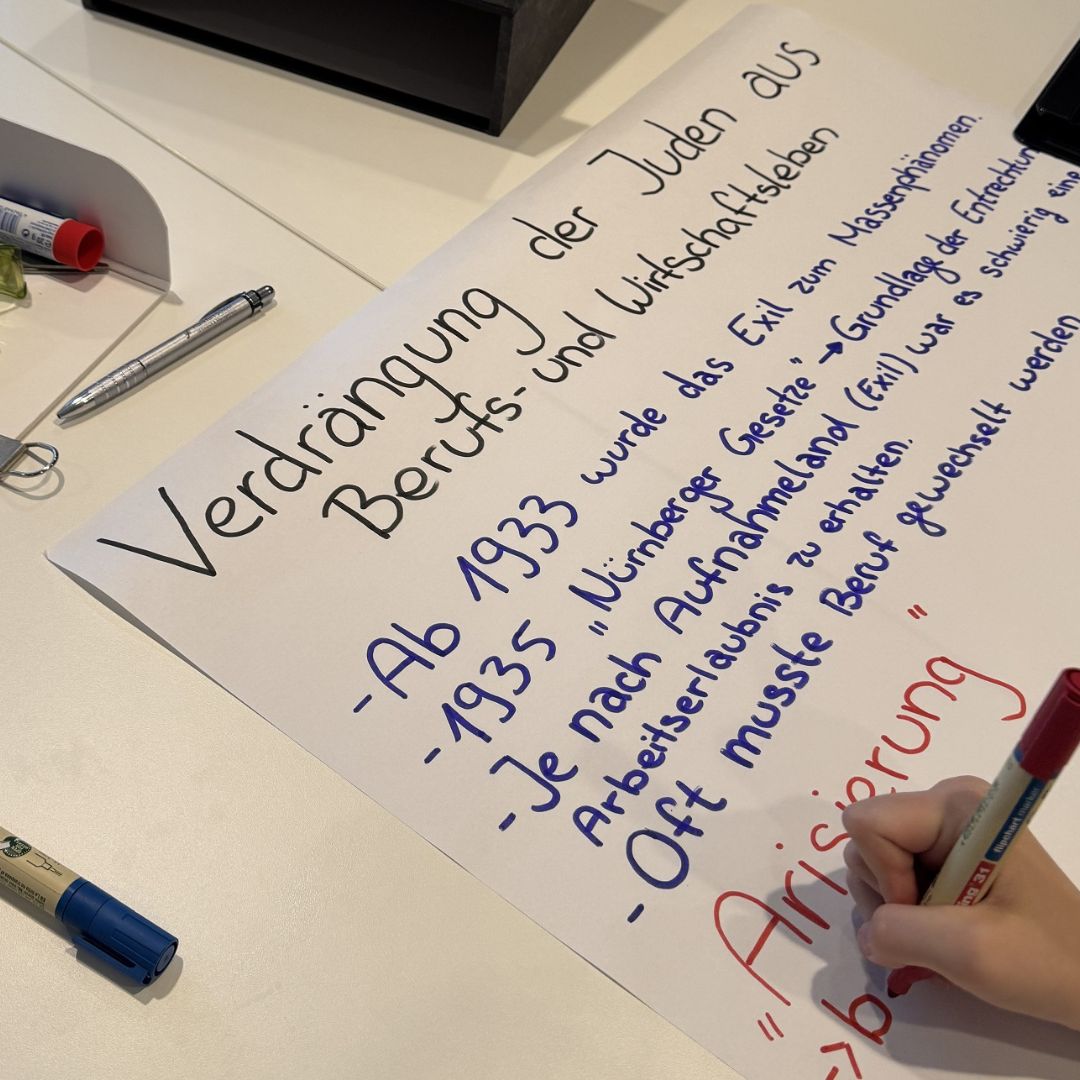 Verdrängung der Juden aus
Berufs- und Wirtschaftsleben
- Ab 1933 wurde das Exil zum Massenphänomen.
- 1935 „Nürnberger Gesetze" → Grundlage der Entrechtun
- Je nach Aufnahmeland (Exil) war es schwierig eine
Arbeitserlaubnis zu erhalten.
- Oft musste Beruf gewechselt werden
„Arisierung"
-> b
flipchart marker
ing 31